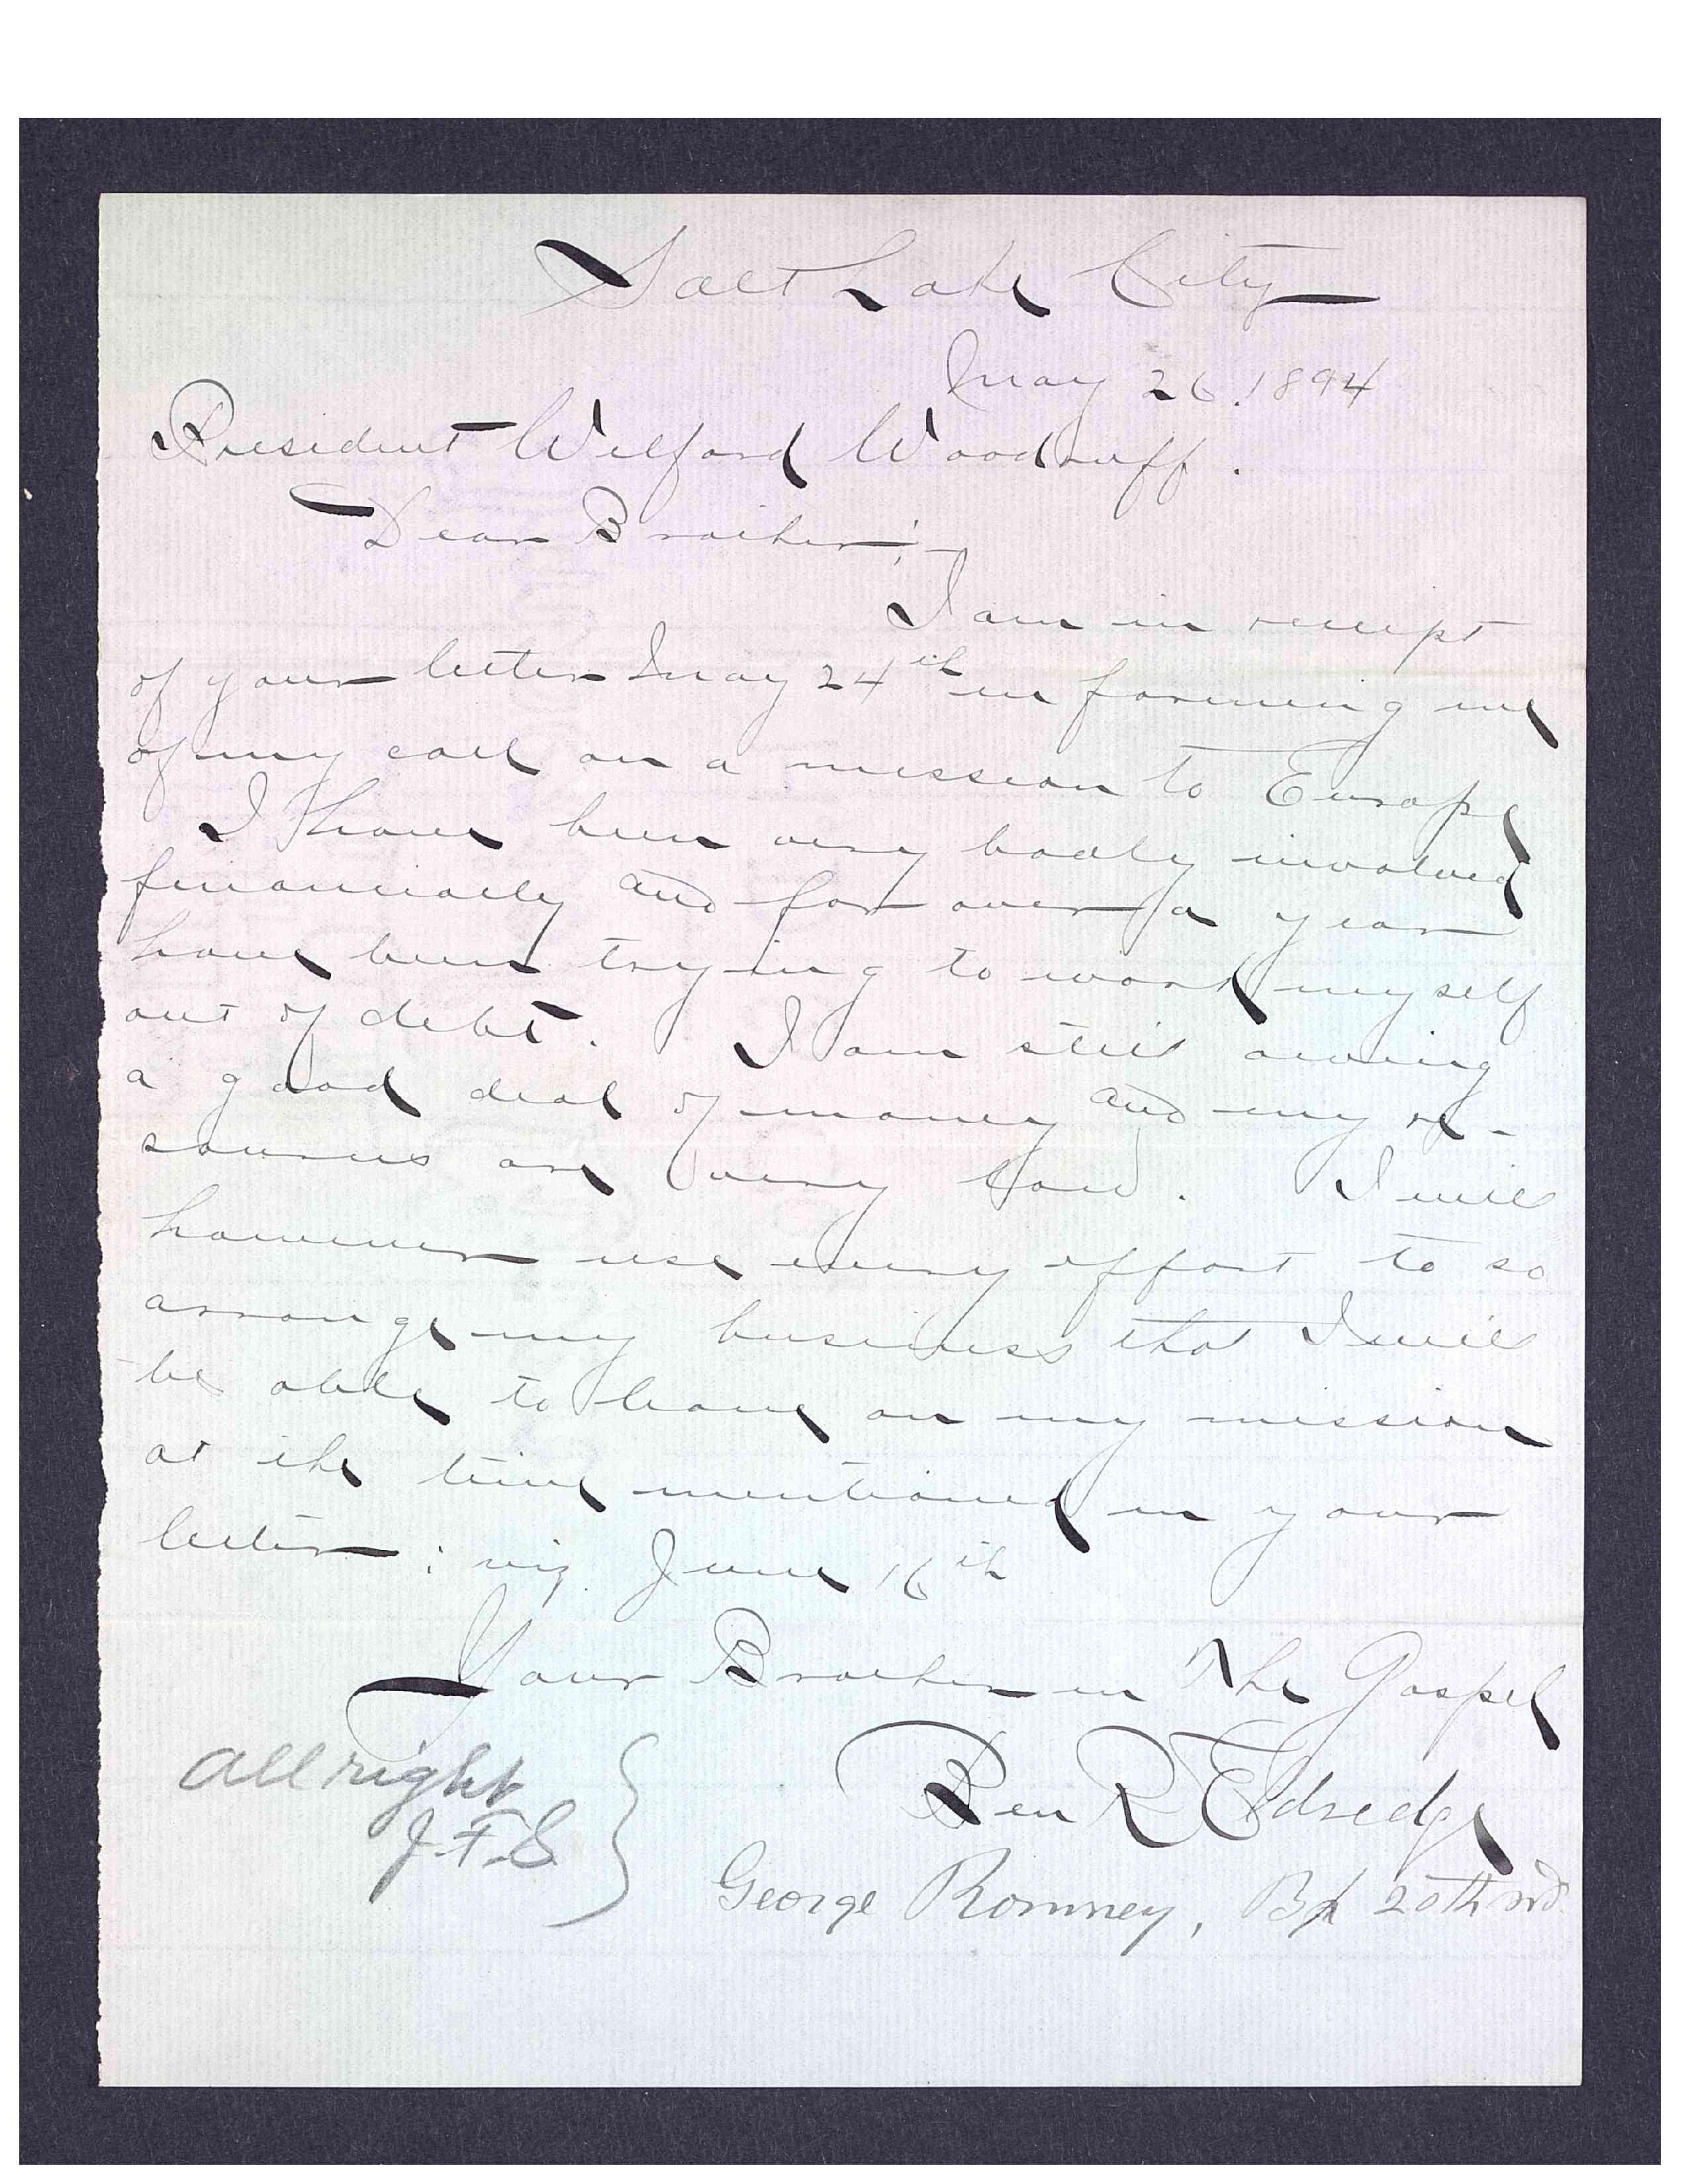 Salt Lake City
May 26. 1894
President Wilford Woodruff.
Dear Brother:-
I am in receipt
of your letter May 24th informing me
of my call on a mission to Europe
I have been very badly involved
financially and for over a year
have been trying to work myself
out of debt. I am still owing
a good deal of money and my re-
sources are very low. I will
however use every effort to so
arrange my business that I will
be able to leave on my mission
at the time mentioned in your
letter: viz June 16th
Your Brother in The Gospel
Ben R Eldredge
George Romney, Bp 20th wd.
All right
J. F. S.